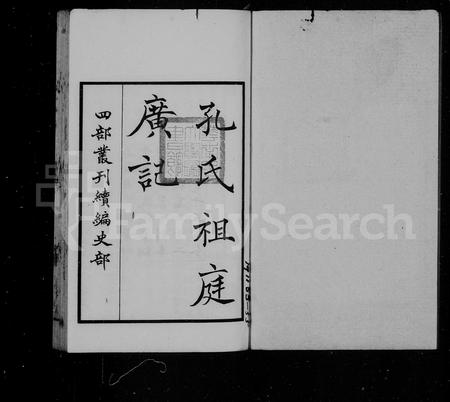 孔氏祖庭
廣記
四部叢刊續編史部
FamilySearch